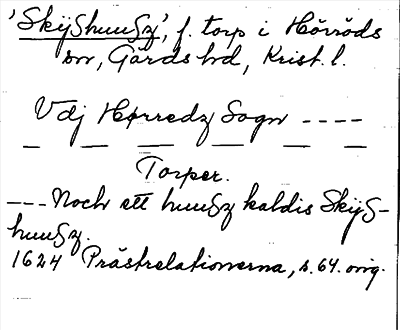 'Skijshuusz', f. torp i Hörröds
sn, Gärds hd, Krist. l.
Vdj Hørredz Sogn ----
— — — — — —
Torper.
--- Noch ett huusz kaldis Skijs-
huusz.
1624 Prästrelationerna, s. 64. orig.